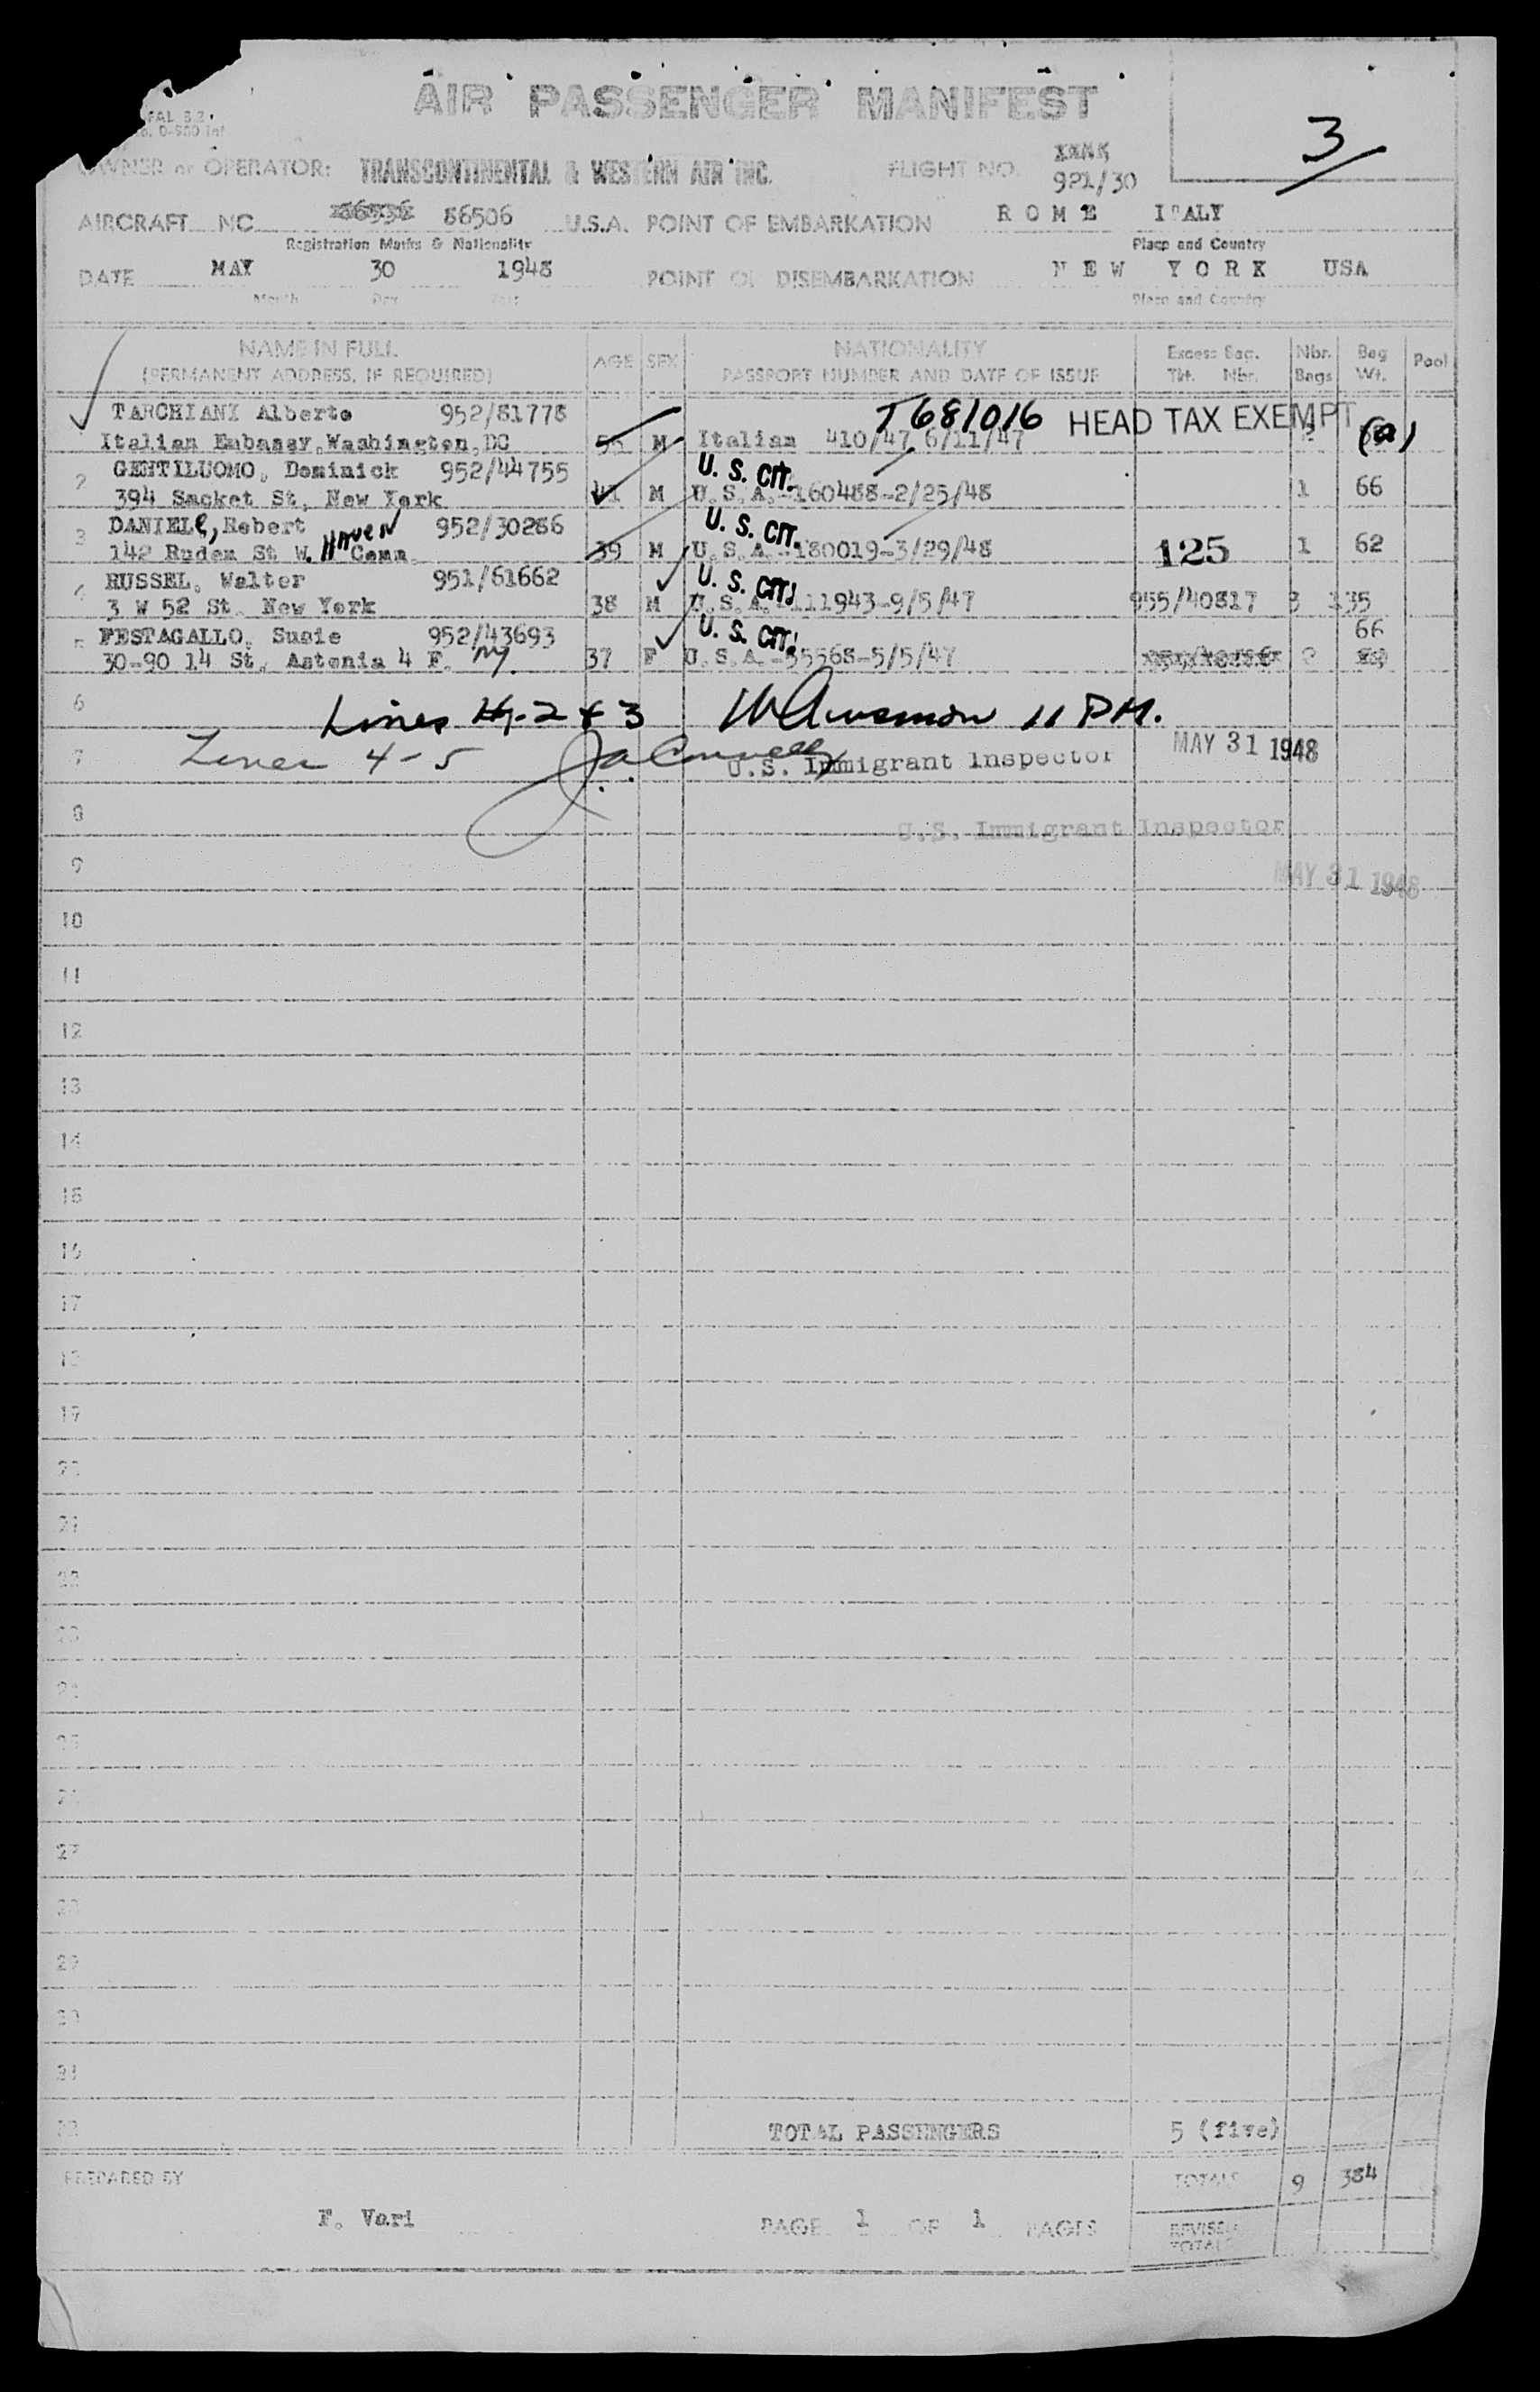 AIR PASSENGER MANIFEST
3
OWNER or OPERATOR: TRANSCONTINENTAL & WESTERN AIR INC. FLIGHT NO. 921/30
AIRCRAFT NC 86506 U.S.A. POINT OF EMBARKATION ROME ITALY
Registration Marks & Nationality Place and Country
DATE MAY 30 1948 POINT OF DISEMBARKATION NEW YORK USA
Month Day Year Place and Country
NAME IN FULL AGE SEX NATIONALITY Excess Bag. Nbr. Bag Pool
(PERMANENT ADDRESS, IF REQUIRED) PASSPORT NUMBER AND DATE OF ISSUE Tkt. Nbr. Bags Wt.
TARCHIANI Alberto 952/81778 T681016 HEAD TAX EXEMPT (a)
Italian Embassy, Washington, DC M Italian 410/47 6/11/47
2 GENTILUOMO, Dominick 952/44755 U. S. CIT.
394 Sacket St, New York 41 M U.S.A.-160488-2/25/48 1 66
3 DANIELe, Robert 952/30286 U. S. CIT.
142 Ruden St W. HAVEN Conn. 39 M U.S.A.-180019-3/29/48 125 1 62
4 RUSSEL, Walter 951/61662 U. S. CIT.
3 W 52 St. New York 38 M U.S.A.-111943-9/5/47 955/40817 3 135
5 FESTAGALLO, Susie 952/43693 U. S. CIT. 66
30-90 14 St, Astonia 4 F. NY. 37 F U.S.A.-55568-5/5/47
6 Lines 2 & 3 11 PM.
7 Lines 4-5 U.S. Immigrant Inspector MAY 31 1948
8 U.S. Immigrant Inspector
9 MAY 31 1948
10
11
12
13
14
15
16
17
18
19
20
21
22
23
24
25
26
27
28
29
30
31
32 TOTAL PASSENGERS 5 (five)
PREPARED BY TOTALS 9 384
F. Vari PAGE 1 OF 1 PAGES REVISED
TOTALS